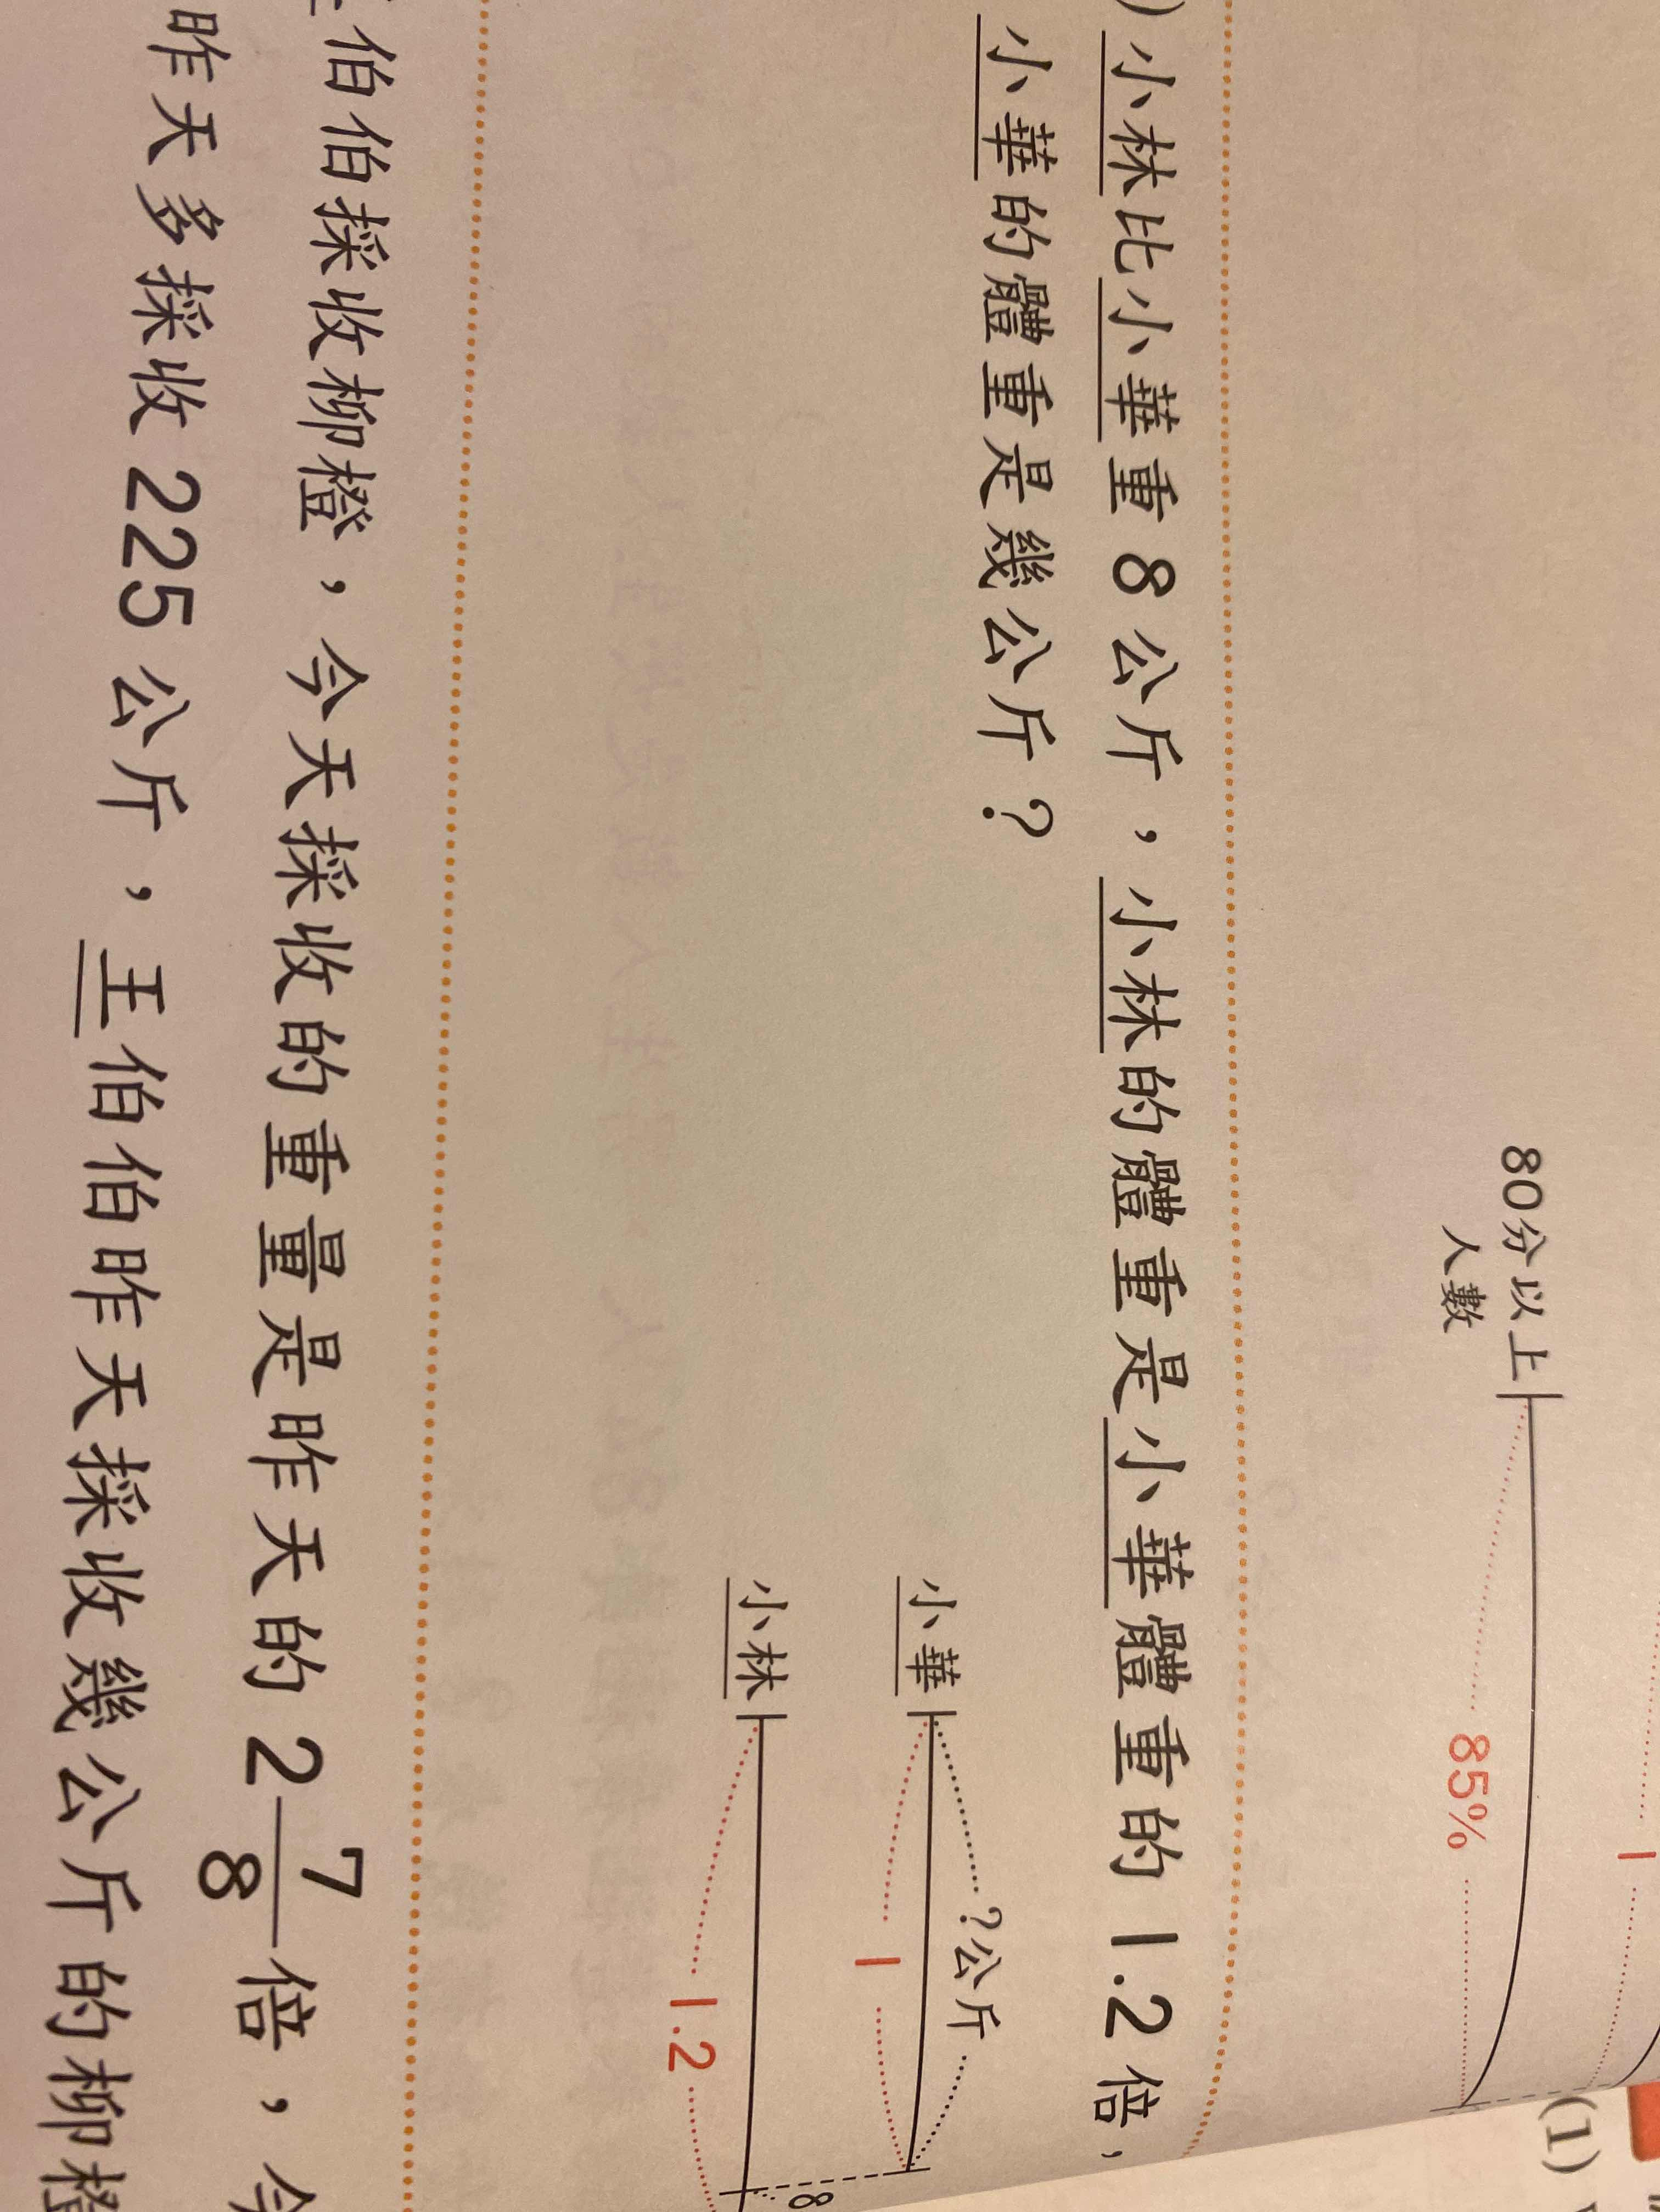 80分以上
人數
1
85%
(1)
小林比小華重8公斤，小林的體重是小華體重的1.2倍，
小華的體重是幾公斤？
?公斤
小華
1
8
小林
1.2
伯伯採收柳橙，今天採收的重量是昨天的2 7/8倍，今
昨天多採收225公斤，王伯伯昨天採收幾公斤的柳橙